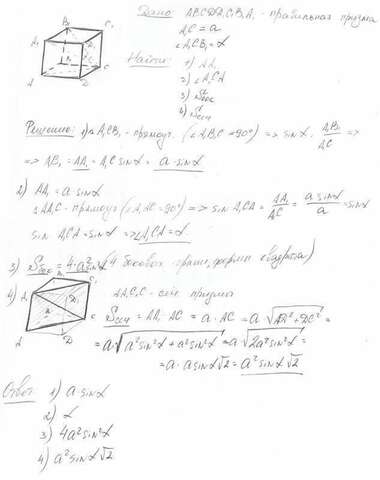 Дано: ABCDA₁B₁C₁D₁ - правильная призма
A₁C = a
∠A₁CB₁ = α
Найти: 1) AA₁
2) ∠A₁CA
3) Sбок
4) Sсеч
Решение: 1) △A₁CB₁ - прямоуг. (∠A₁B₁C = 90°) => sinα = A₁B₁/A₁C =>
=> A₁B₁ = AA₁ = A₁C sinα = a·sinα
2) AA₁ = a sinα
△AA₁C - прямоуг (∠A₁AC = 90°) => sin A₁CA = AA₁/A₁C = a sinα/a = sinα
sin A₁CA = sinα => ∠A₁CA = α
3) Sбок = 4·a²sin²α (4 боковых грани, форма квадрата)
4) AA₁C₁C - сеч призмы
Sсеч = AA₁·AC = a·AC = a·√AD²+DC² =
= a·√a²sin²α + a²sin²α = a·√2a²sin²α =
= a·a sinα√2 = a²sinα√2
Ответ: 1) a·sinα
2) α
3) 4a²sin²α
4) a²sinα√2